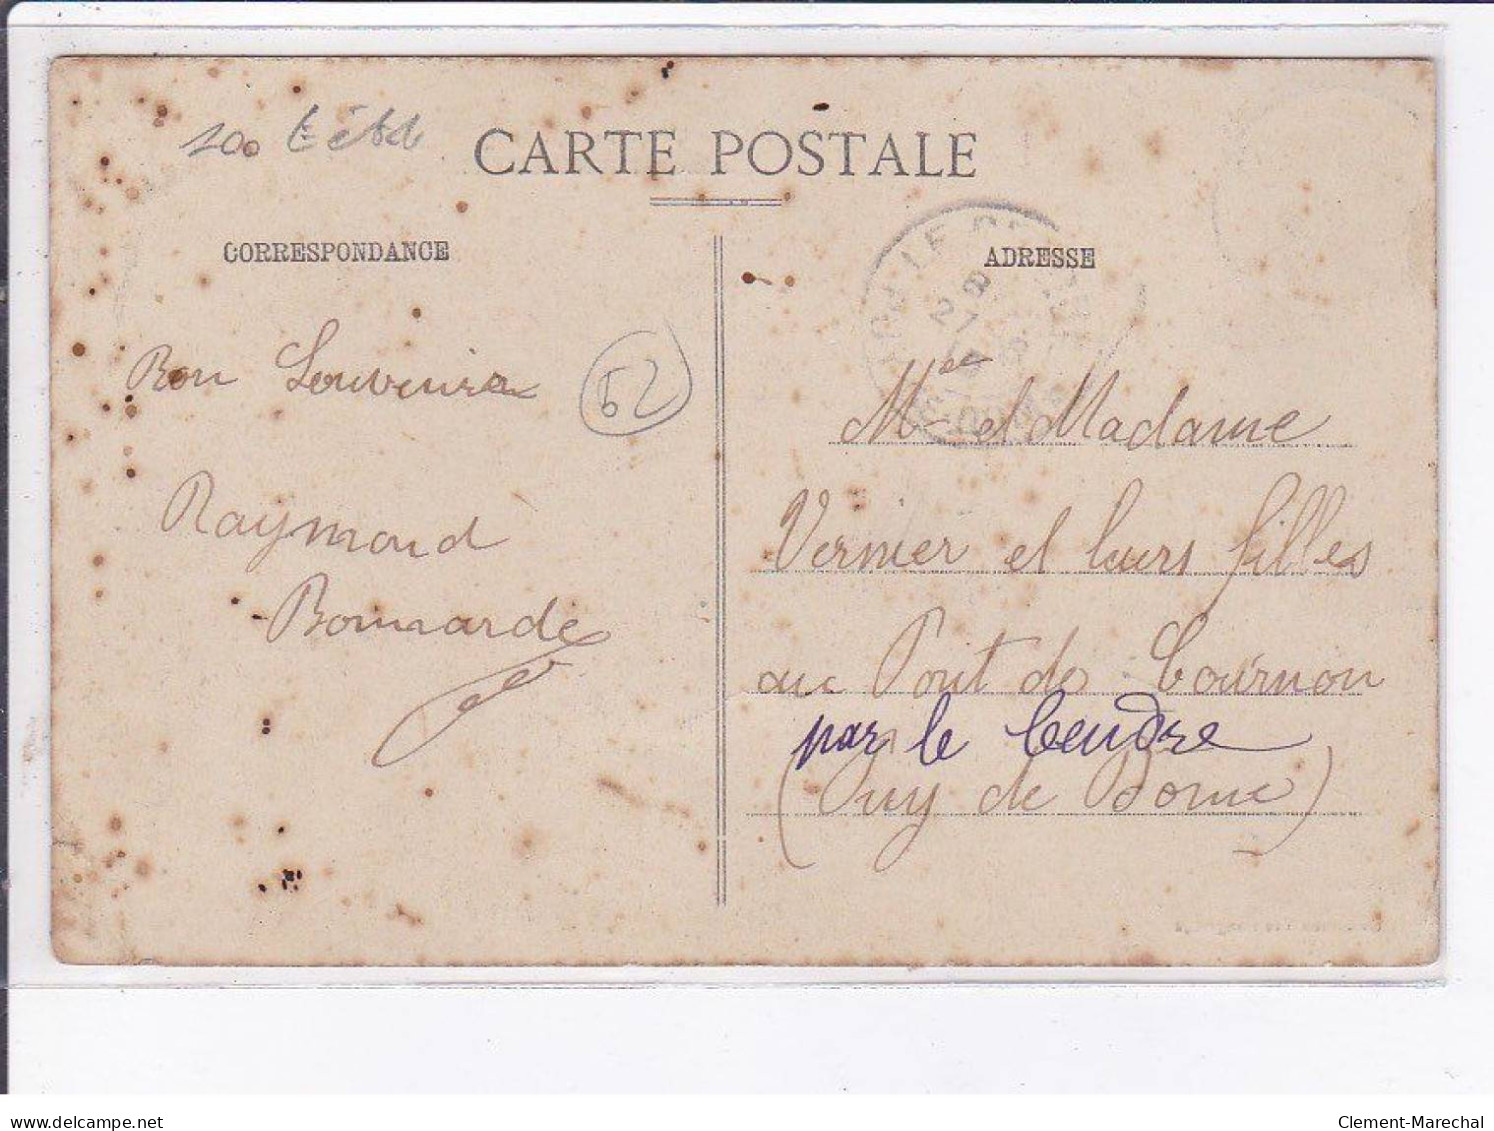 200
CARTE POSTALE
CORRESPONDANCE
ADRESSE
Bon Souvenir
62
Raymond
Bonnarde
Mr et Madame
Vernier et leurs filles
au Pont de Cournon
par le Cendre
(Puy de Dome)
delcampe.net
Clement-Marechal